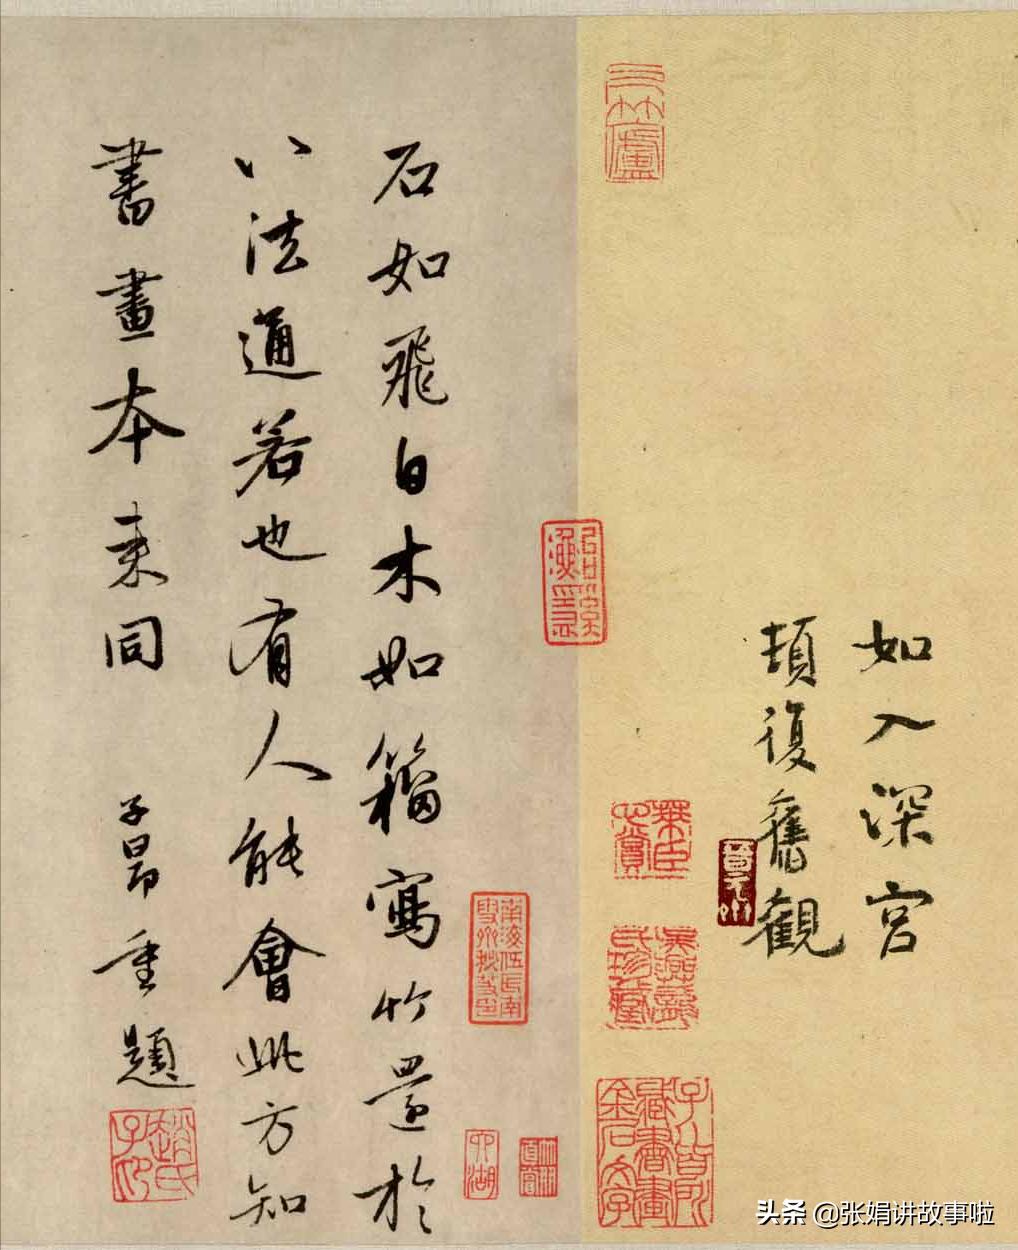 如入深宮
頓復舊觀
石如飛白木如籀寫竹還於
八法通若也有人能會此方知
書畫本來同
子昂重題
趙氏子昂
头条 @张娟讲故事啦